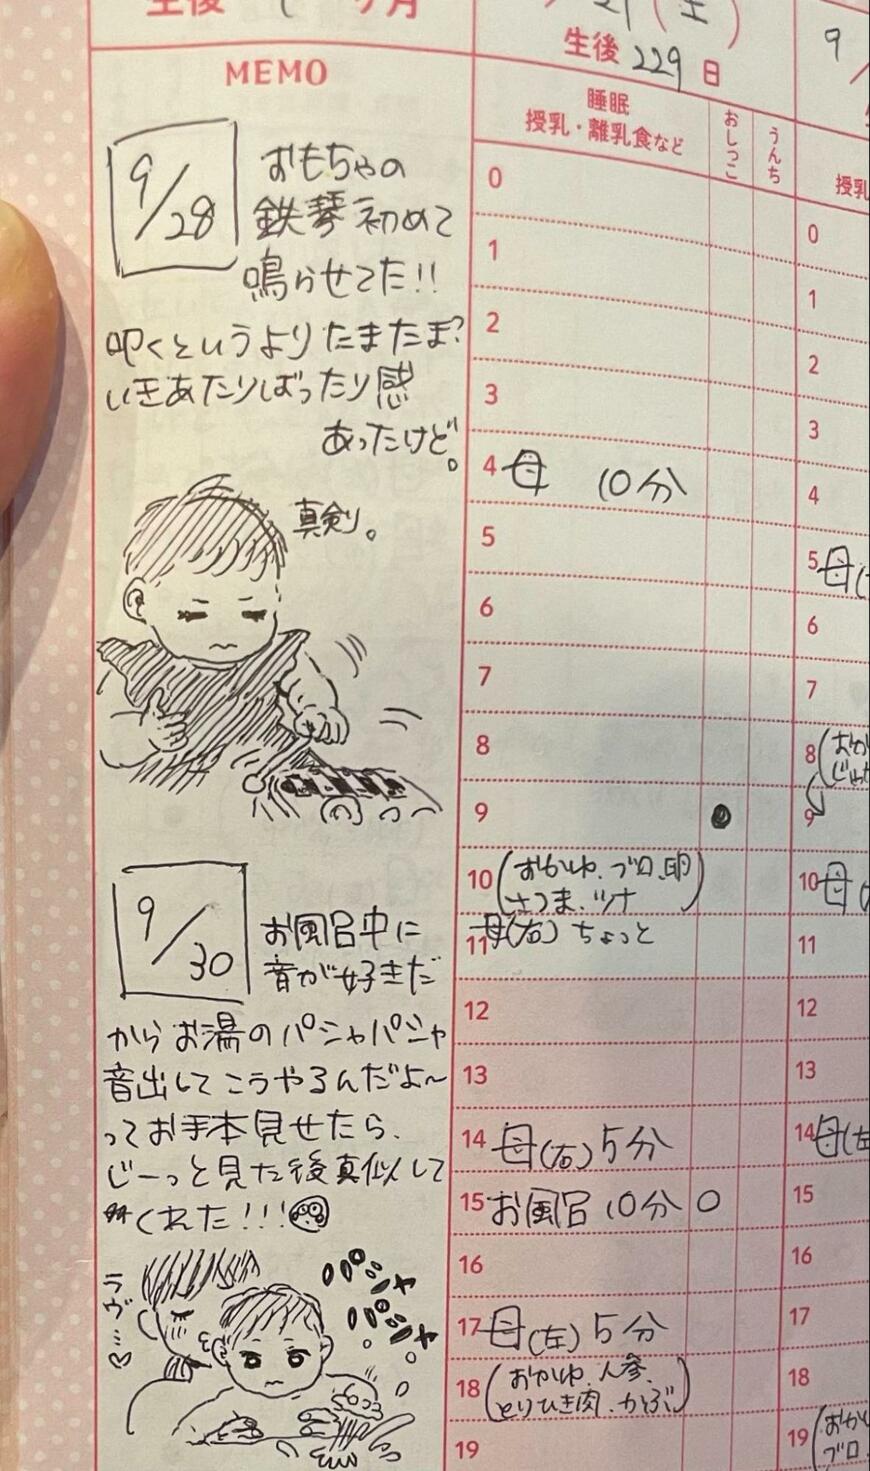 生後 ヶ月
MEMO
9/28
おもちゃの
鉄琴初めて
鳴らせてた!!
叩くというよりたまたま?
いきあたりばったり感
あったけど。
真剣。
9/30
お風呂中に
音が好きだ
からお湯のパシャパシャ
音出してこうやるんだよ〜
ってお手本見せたら、
じーっと見た後真似して
くれた!!!
ラヴ…♡
パシャ
パシャ
(土)
生後 229 日
睡眠
授乳・離乳食など
おしっこ
うんち
0
1
2
3
4 母 10分
5
6
7
8
9
10 (おかゆ、ブロ、卵
さつま、ツナ)
11 母(右) ちょっと
12
13
14 母(右) 5分
15 お風呂 10分 〇
16
17 母(左) 5分
18 (おかゆ、人参、
とりひき肉、かぶ)
19
9/
授乳
0
1
2
3
4
5 母(
6
7
8 (おか
9
10 母(
11
12
13
14 母(左
15
16
17
18
19 (おか
ブロ、